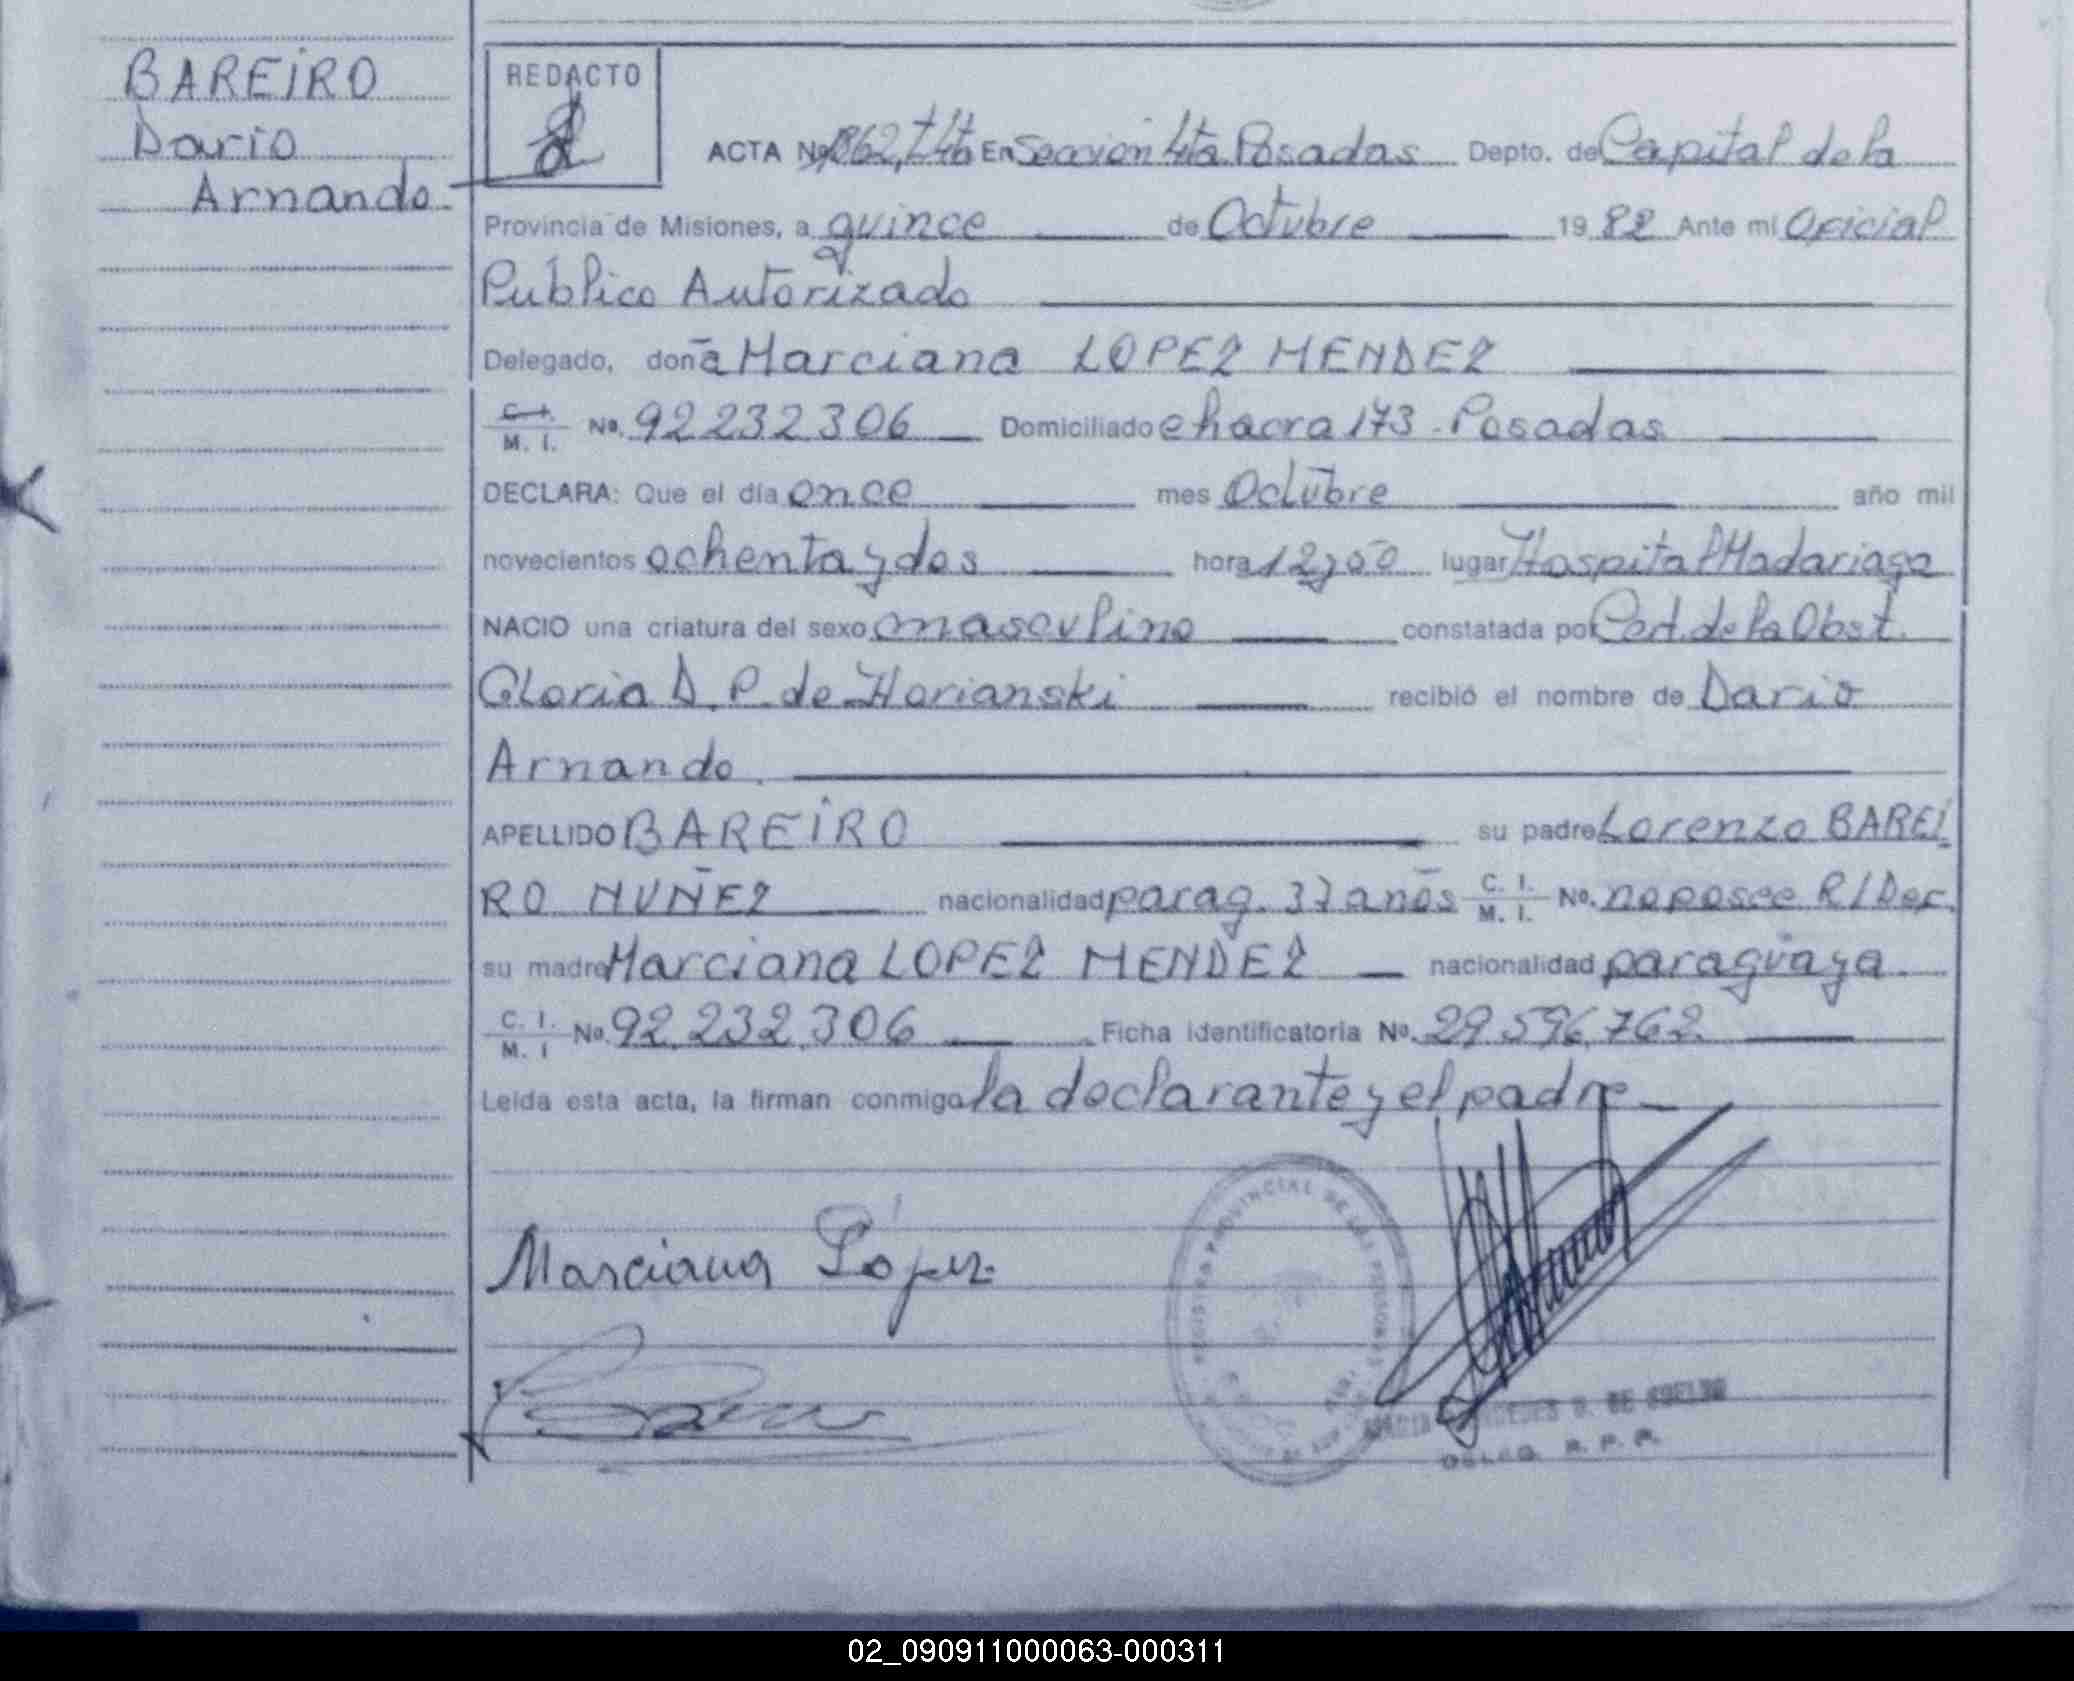 BAREIRO
Dario
Arnando
REDACTO
ACTA No 862, tº4to En Sección 4ta. Posadas Depto. de Capital de la
Provincia de Misiones, a quince de Octubre 1982 Ante mí Oficial
Público Autorizado
Delegado, doña Marciana LOPEZ MENDEZ
C. I. M. I. No. 92232306 Domiciliado chacra 173 - Posadas
DECLARA: Que el día once mes Octubre año mil
novecientos ochenta y dos hora 12,00 lugar Hospital Madariaga
NACIO una criatura del sexo masculino constatada por Cert. de la Obst.
Gloria D. P. de Horianski recibió el nombre de Dario
Arnando.
APELLIDO BAREIRO su padre Lorenzo BAREI
RO NUÑEZ nacionalidad parag. 37 años C. I. M. I. No. no posee R/Dec.
su madre Marciana LOPEZ MENDEZ nacionalidad paraguaya.
C. I. M. I No. 92.232.306 Ficha identificatoria No. 29.596.762.
Leída esta acta, la firman conmigo la declarante y el padre
Marciana López
REGISTRO PROVINCIAL DE LAS PERSONAS
DE CUELHO
DELEG. R. P. P.
02_090911000063-000311